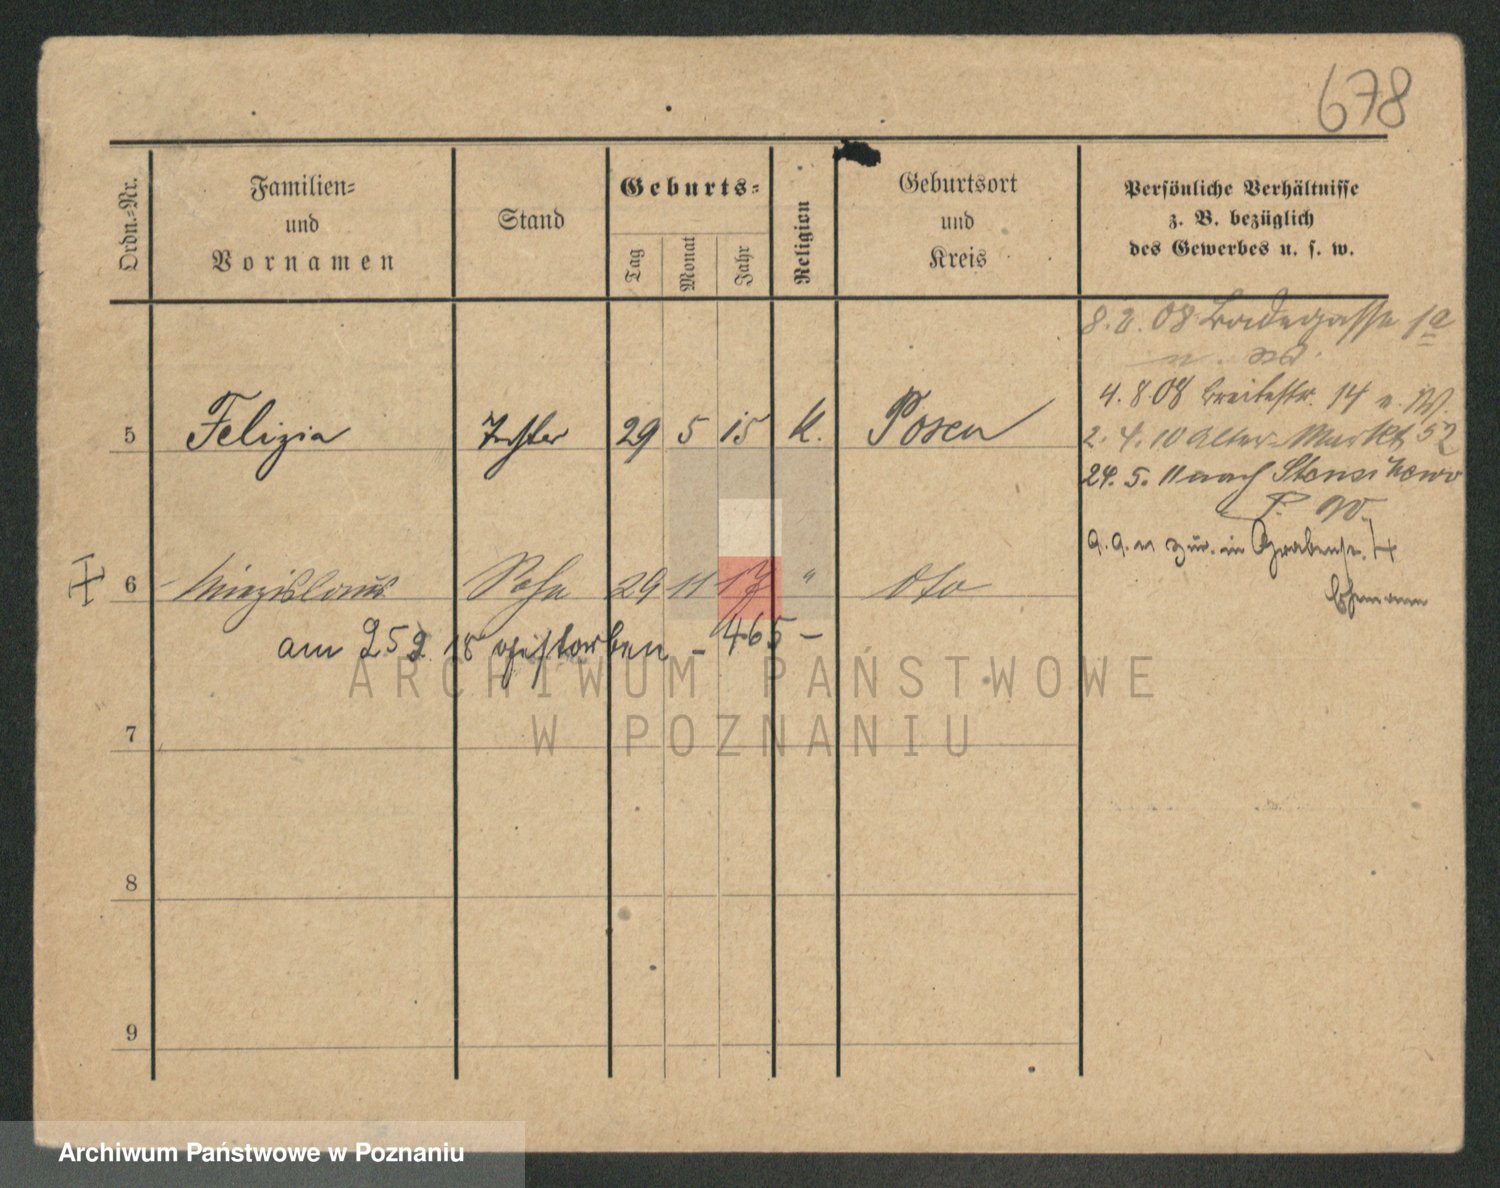 678
Ordn.-Nr.
Familien-
und
Vornamen
Stand
Geburts-
Tag
Monat
Jahr
Religion
Geburtsort
und
Kreis
Persönliche Verhältnisse
z. B. bezüglich
des Gewerbes u. s. w.
8. 2. 08 1a
4. 8. 08 Breitestr. 14 n. W.
5 Felizia Tochter 29 5 15 k. Posen
2. 4. 10 Alter Markt 52
24. 5. 11 nach
6 Miezislaus Sohn 29 11 17 " dto
9. 9. 11 zur. in Grabenstr. 4
am 25 9. 18 gestorben – 465 –
7
8
9
ARCHIWUM PAŃSTWOWE
W POZNANIU
Archiwum Państwowe w Poznaniu